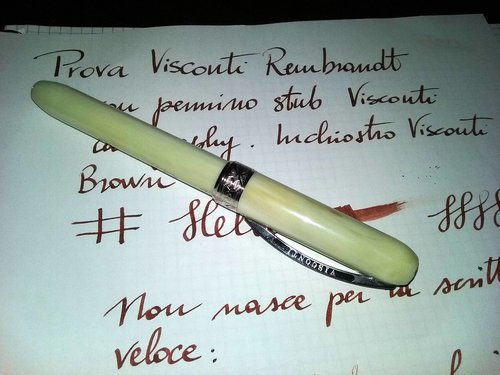 Prova Visconti Rembrandt
pennino stub Visconti
Inchiostro Visconti
Brown
#
VISCONTI
Non nasce per la
veloce: